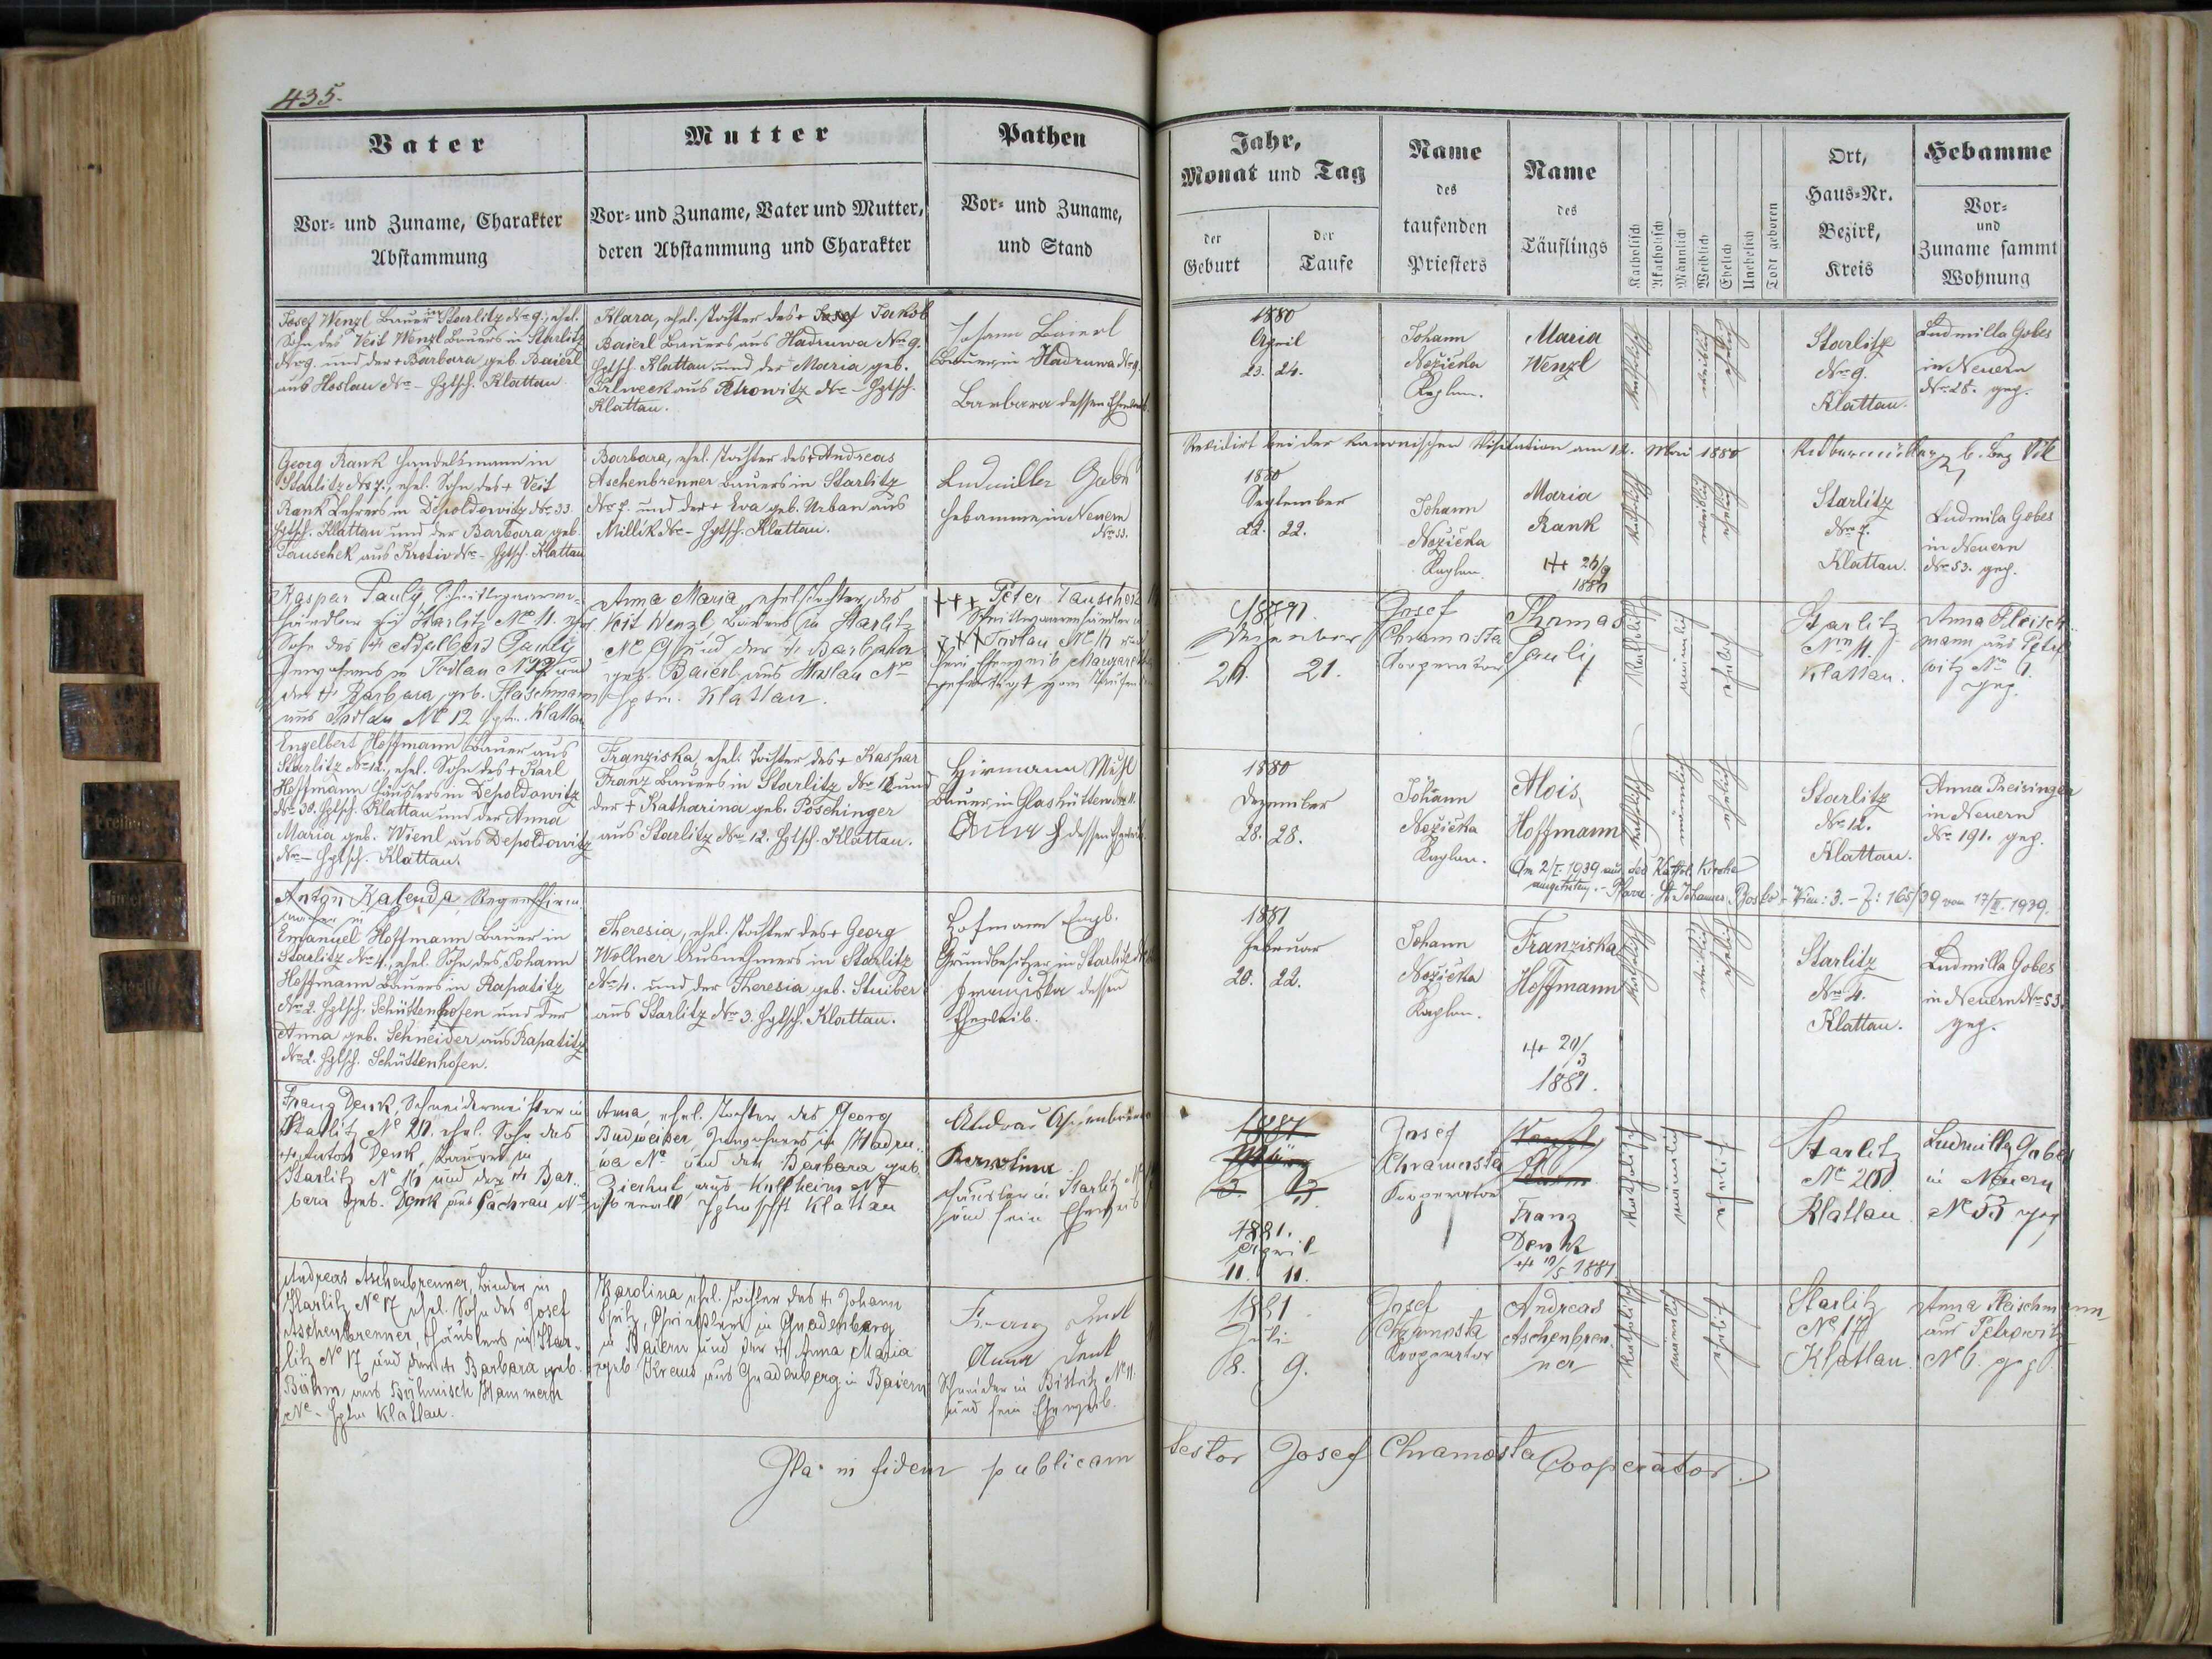 435.
Vater
Mutter
Pathen
Vor- und Zuname, Charakter
Abstammung
Vor- und Zuname, Vater und Mutter,
deren Abstammung und Charakter
Vor- und Zuname,
und Stand
Jahr,
Monat und Tag
der
Geburt
der
Taufe
Name
des
taufenden
Priesters
Name
des
Täuflings
Katholisch
Akatholisch
Männlich
Weiblich
Ehelich
Unehelich
Todt geboren
Ort,
Haus-Nr.
Bezirk,
Kreis
Hebamme
Vor-
und
Zuname sammt
Wohnung
Josef Wenzl Bauer in Starlitz No 9., ehel.
Sohn des Veit Wenzl Bauers in Starlitz
No 9. und der + Barbara geb. Baierl
aus Hoslau No - Hptsch. Klattau
Klara, ehel. Tochter des + Josef Jakob
Baierl Bauers aus Hadruwa No 9.
Hptsch. Klattau und der Maria geb.
aus Petrowitz No - Hptsch.
Klattau.
Johann Baierl
Bauer in Hadruwa No 9.
Barbara dessen Eheweib.
1880
April
23. 24.
Johann
Nožička
Kaplan.
Maria
Wenzl
katholisch
weiblich
ehelich
Starlitz
No 9.
Klattau.
Ludmilla Gobes
in Neuern
No 28. gep.
Revidirt bei der kanonischen Visitation am 12. Mai 1880
Georg Rank Handelsmann in
Starlitz No 7., ehel. Sohn des + Veit
Rank Lehrers in Depoldowitz No 33.
Hptsch. Klattau und der Barbara geb.
Tauschek aus Krotiv No - Hptsch. Klattau
Barbara, ehel. Tochter des + Andreas
Aschenbrenner Bauers in Starlitz
No 7. und der + Eva geb. Urban aus
Millik No - Hptsch. Klattau.
Hebamme in Neuern
No 53.
1880
September
22. 22.
Johann
Nožička
Kaplan.
Maria
Rank
1880
katholisch
weiblich
ehelich
Starlitz
No 7.
Klattau.
Ludmila Gobes
in Neuern
No 53. gep.
Kaspar Pauly Schnittwaaren-
händler zu Starlitz No 11. ehel.
Sohn des + Adalbert Pauly
Inwohners in Todlau No 12 und
der + Barbara, geb. Flaschmann
aus Todlau No 12 Hptm. Klattau
Anna Maria, ehel. Tochter des
Veit Wenzl Bauers in Starlitz
No 9 und der + Barbara
geb. Baierl aus Hoslau No
Hptm. Klattau.
+++ Peter Tauschek
Schnittwaarenhändler in
+++ Todlau No
Eheweib Margaretha
gefertigt vom Taufenden
Dezember
21.
Josef
Chramosta
Kooperator
Thomas
Pauly
katholisch
männlich
ehelich
Starlitz
No 11.
Klattau.
Anna Fleisch-
mann aus Petro-
witz No 6.
gep.
Engelbert Hoffmann Bauer aus
Starlitz No 12., ehel. Sohn des + Karl
Hoffmann Häuslers in Depoldowitz
No 38. Hptsch. Klattau und der Anna
Maria geb. Wienl aus Depoldowitz
No - Hptsch. Klattau.
Franziska, ehel. Tochter des + Kaspar
Franz Bauers in Starlitz No 12 und
der + Katharina geb. Pöschinger
aus Starlitz No 12. Hptsch. Klattau.
Bauer in Glashütten No 11.
Anna dessen Eheweib.
1880
Dezember
28. 28.
Johann
Nožička
Kaplan.
Alois
Hoffmann
katholisch
männlich
ehelich
Am 2/I. 1939 aus der Kathol. Kirche
ausgetreten. - Pfarre St. Johannes Bosko - Wien: 3. - Z: 165/39 vom 17/II. 1939.
Starlitz
No 12.
Klattau.
Anna Preisinger
in Neuern
No 191. gep.
Anton Kalenda, Regenschirm-
macher in
Emanuel Hoffmann Bauer in
Starlitz No 4., ehel. Sohn des Johann
Hoffmann Bauers in Rapatitz
No 2. Hptsch. Schüttenhofen und der
Anna geb. Schneider aus Rapatitz
No 2. Hptsch. Schüttenhofen.
Theresia, ehel. Tochter des + Georg
Wöllner Ausnehmers in Starlitz
No 4. und der Theresia geb. Stuiber
aus Starlitz No 3. Hptsch. Klattau.
Hofmann Engb.
Grundbesitzer in Starlitz
Franziska dessen
Eheweib.
1881
Februar
20. 22.
Johann
Nožička
Kaplan.
Franziska
Hoffmann
+++ 20/3
1881.
katholisch
weiblich
ehelich
Starlitz
No 4.
Klattau.
Ludmilla Gobes
in Neuern No 53.
gep.
Franz Denk, Schneidermeister in
Starlitz No 20. ehel. Sohn des
+ Anton Denk, Bauers in
Starlitz No 16 und der + Bar-
bara geb. Denk aus Pachrau No
Anna, ehel. Tochter des Georg
Budweiser Inwohners in Hadru-
wa No und der Barbara geb.
Zierhut aus Kollheim No 7
Klattau
Andreas Aschenbrenner
Karolina
Häusler in Starlitz No
und sein Eheweib
1881
März
1881.
April
11. 11.
Josef
Chramosta
Kooperator
Franz
Denk
1881
katholisch
männlich
ehelich
Starlitz
No 20
Klattau
Ludmilla Gobes
in Neuern
No 53 gep.
Andreas Aschenbrenner, Binder in
Starlitz No 17 ehel. Sohn des Josef
Aschenbrenner, Häuslers in Star-
litz No 17 und der + Barbara geb.
Böhm aus Böhmisch Hammern
No - Hptm Klattau.
Karolina ehel. Tochter des + Johann
in Gnadenberg
in Baiern und der + Anna Maria
geb Kraus aus Gnadenberg in Baiern
Franz Denk
Anna Denk
Schneider in Bistritz No 11.
und sein Eheweib.
1881
Juli
8. 9.
Josef
Chramosta
Kooperator
Andreas
Aschenbren-
ner
katholisch
männlich
ehelich
Starlitz
No 17
Klattau.
Anna Fleischmann
aus Petrowitz
No 6. gep.
Ita in fidem publicam testor Josef Chramosta Cooperator.